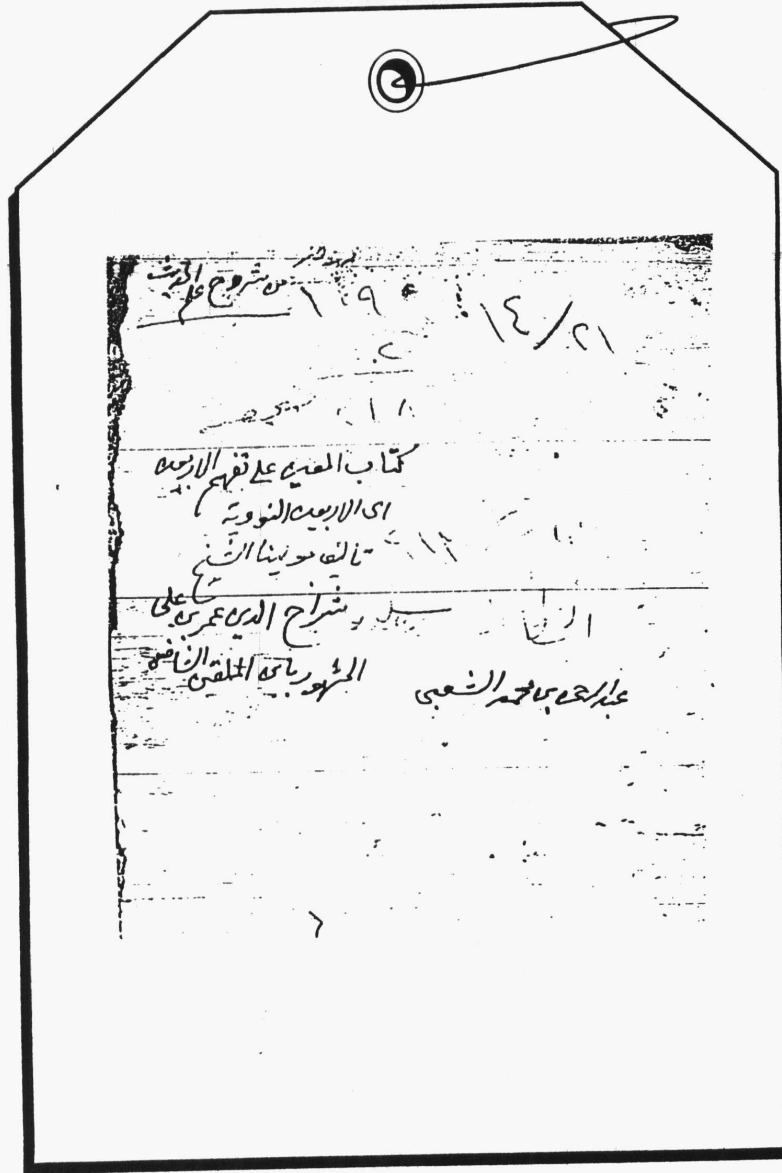 من شروح علم الحديث
١٤/٢١
١٠٩
٢
كتاب المعين على تفهم الاربعين
اى الاربعين النووية
تاليف مولينا الشيخ
سراج الدين عمر بن على
المشهور بابن الملقن الشافعى
عبد الرحمن بن محمد الشعبى